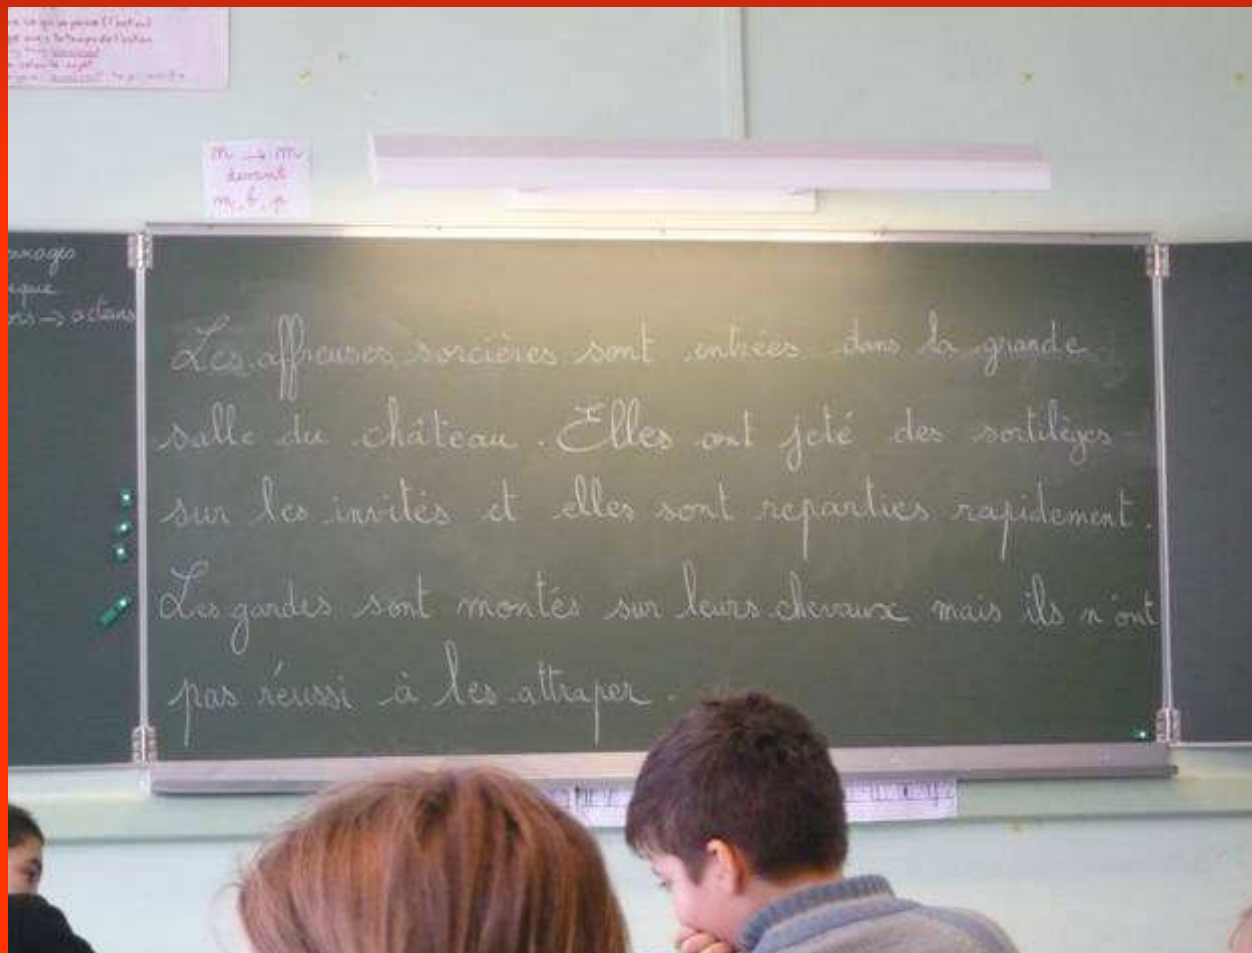 n → m
devant
m, b, p
→ actions
Les affreuses sorcières sont entrées dans la grande
salle du château. Elles ont jeté des sortilèges
sur les invités et elles sont reparties rapidement.
Les gardes sont montés sur leurs chevaux mais ils n'ont
pas réussi à les attraper.